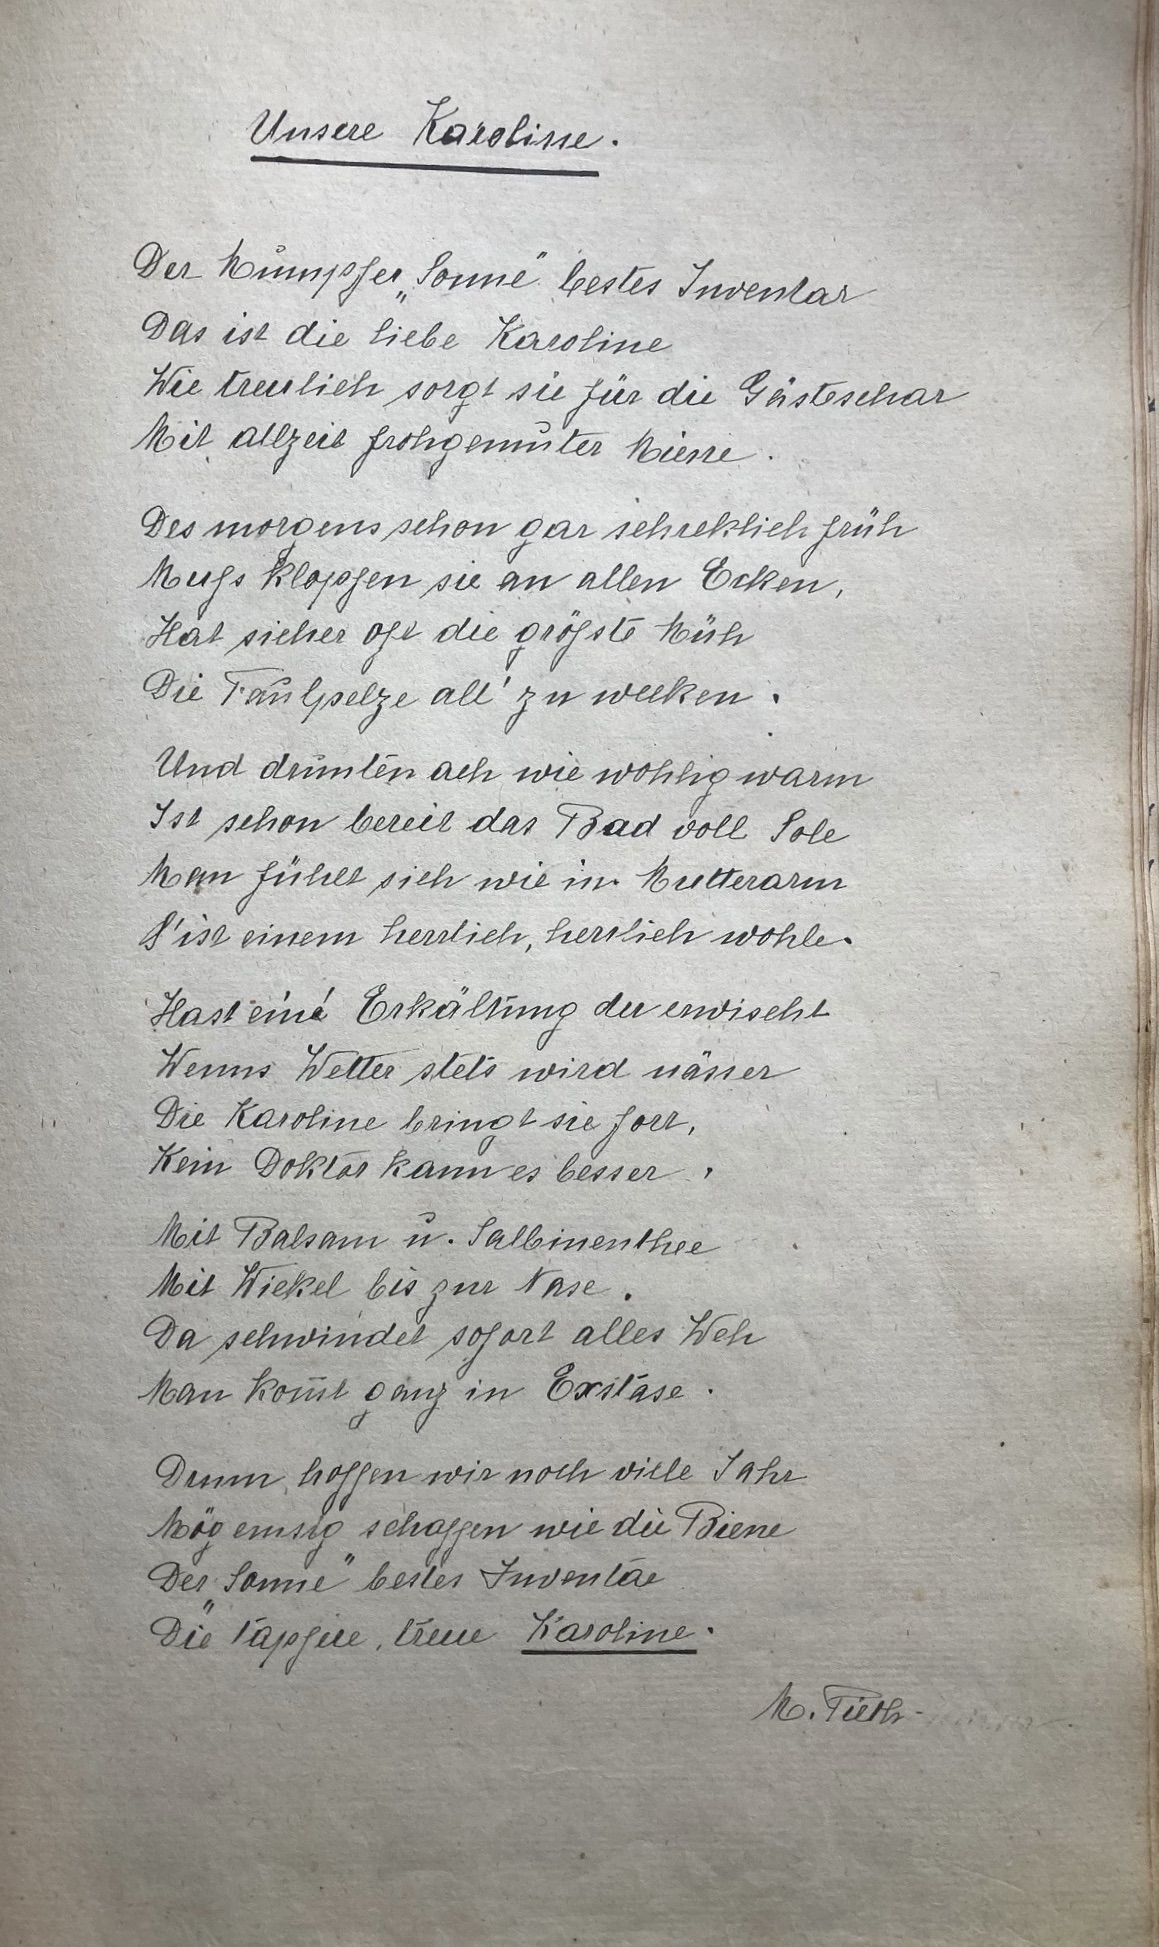 Unsere Karoline.
Der Mumpfer „Sonne" bestes Inventar
Das ist die liebe Karoline
Wie treulich sorgt sie für die Gästeschar
Mit allzeit frohgemuter Miene.
Des morgens schon gar schreklich früh
Muss klopfen sie an allen Ecken,
Hat sicher oft die grösste Müh
Die Faulpelze all' zu wecken.
Und drunten ach wie wohlig warm
Ist schon bereit das Bad voll Sole
Man fühlt sich wie in Mutterarm
S'ist einem herrlich, herrlich wohle.
Hast eine Erkältung du erwischt
Wenns Wetter stets wird nässer
Die Karoline bringt sie fort,
Kein Doktor kann es besser.
Mit Balsam u. Salbinenthee
Mit Wickel bis zur Nase.
Da schwindet sofort alles Weh
Man kom̄t ganz in Exstase.
Drum hoffen wir noch viele Jahr
Mög emsig schaffen wie die Biene
Der „Sonne" bestes Inventar
Die tapfere, treue Karoline.
M.